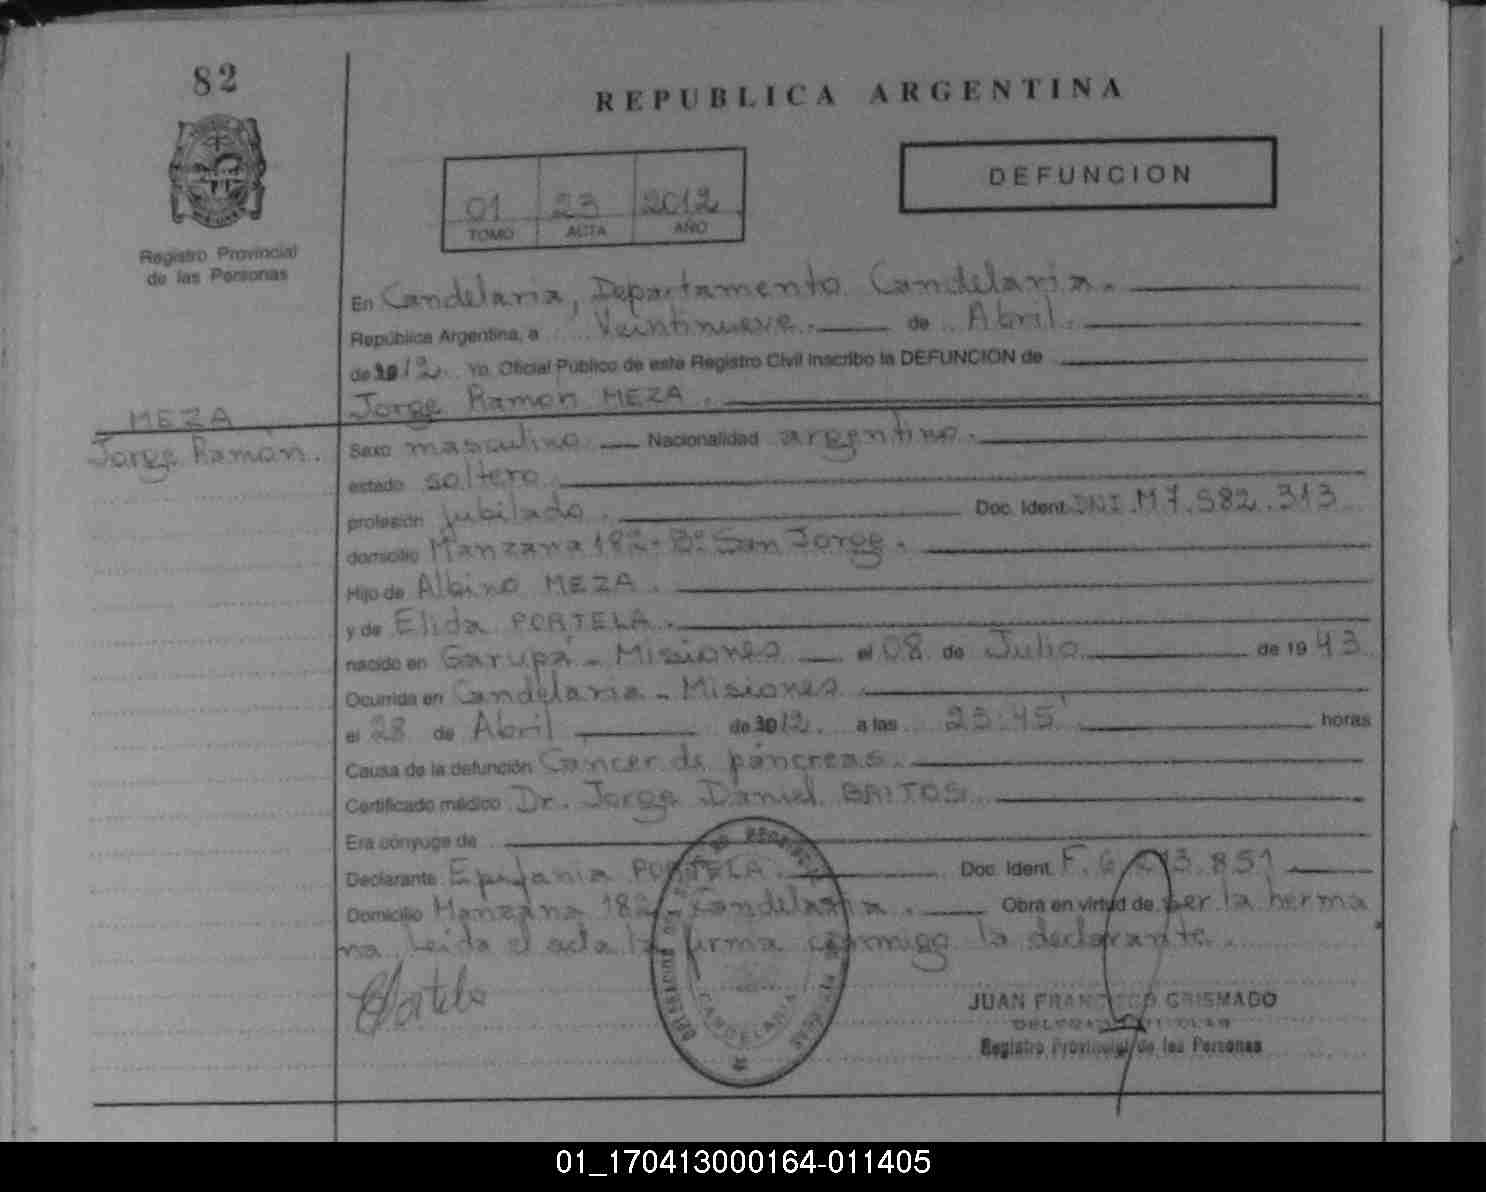 82
REPUBLICA ARGENTINA
DEFUNCION
01 23 2012
TOMO ACTA AÑO
Registro Provincial
de las Personas
En Candelaria, Departamento Candelaria.
República Argentina, a Veintinueve. de Abril.
de 2012. Yo, Oficial Público de este Registro Civil inscribo la DEFUNCION de
Jorge Ramón MEZA.
MEZA
Jorge Ramón.
Sexo masculino Nacionalidad argentino.
estado soltero
profesión jubilado. Doc. Ident. DNI.M 7.582.313
domicilio Manzana 182- Bº San Jorge.
Hijo de Albino MEZA.
y de Elida PORTELA.
nacido en Garupá - Misiones el 08 de Julio de 1943
Ocurrida en Candelaria - Misiones
el 28 de Abril de 2012. a las 23:45' horas
Causa de la defunción Cáncer de páncreas.
Certificado médico Dr. Jorge Daniel BRITOS.
Era cónyuge de
Declarante Epifania PORTELA. Doc. Ident. F. 6. 13.851
Domicilio Manzana 182 Candelaria. Obra en virtud de ser la herma
na, Leída el acta la firma conmigo la declarante.
EPortela
CANDELARIA
JUAN FRANCISCO GRISMADO
DELEGADO TITULAR
Registro Provincial de las Personas
01_170413000164-011405